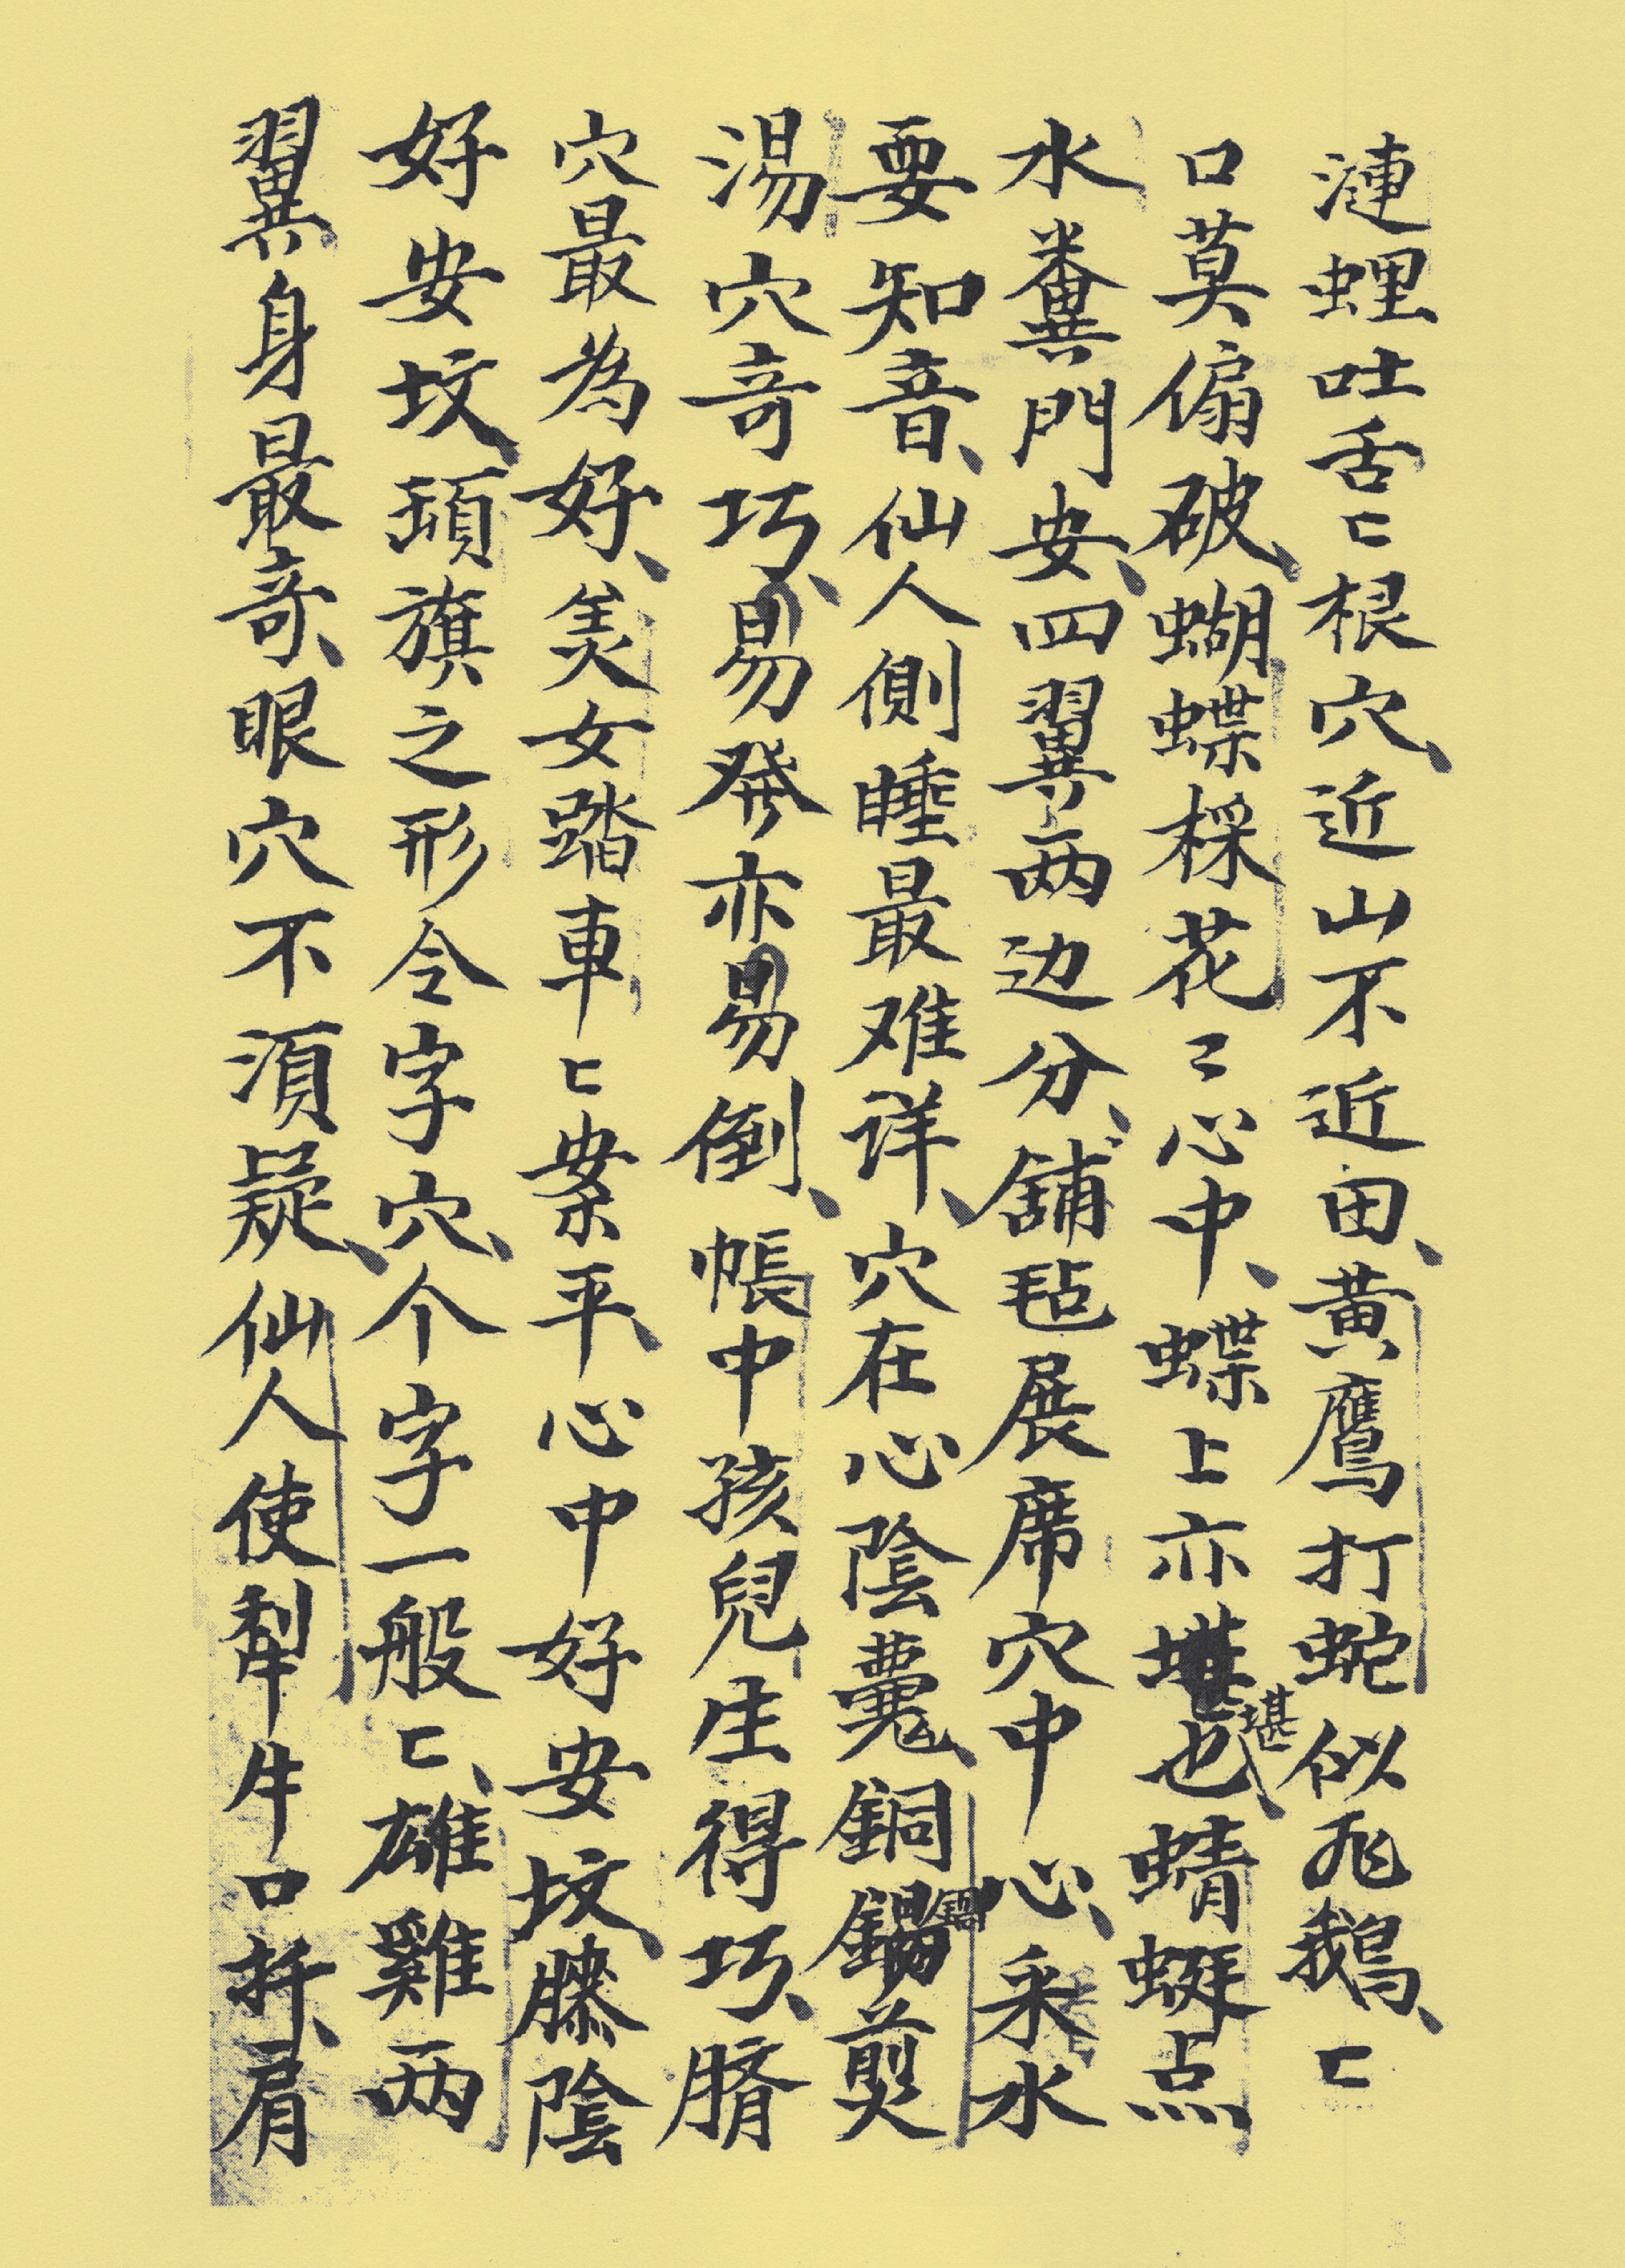 漣蛐吐舌匕根穴、近山不近田、黄鷹打蛇似飛鵝、匕
口莫傓破、蝴蝶棌花〻心中、蝶上亦堪也、蜻蜓点
堪
水糞門安、四翼两边分、舖毡展席穴中心、采水
要知音、仙人側睡最难详、穴在心陰囊、銅鑼剪
鍋
湯穴竒巧、易発亦易倒、帳中孩兒生得巧、臍
穴最為好、美女踏車匕案平、心中好安坟、膝陰
好安坟、頭旗之形令字穴、个字一般匕、雄雞两
翼身最竒、眼穴不須疑、仙人使犁牛口折、肩